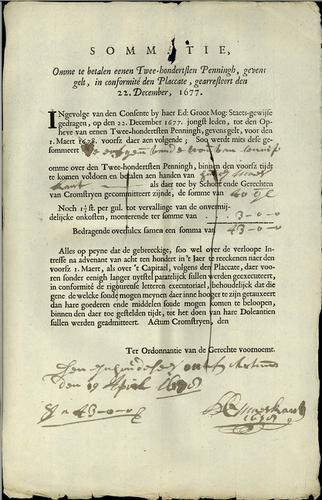 SOMMATIE,
Omme te betalen eenen Twee-hondertsten Penningh, gevens
gelt, in conformité den Placcate, gearresteert den
22. December, 1677.
INgevolge van den Consente by haer Ed: Groot Mog: Staets-gewijse
gedragen, op den 22. December 1677. jongst leden, tot den Op-
heve van eenen Twee-hondertsten Penningh, gevens gelt, voor den
1. Maert 1678. voorsz daer aen volgende; Soo werd mits dese ge-
sommeert
omme over den Twee-hondertsten Penningh, binnen den voorsz tijdt
te komen voldoen en betalen aen handen van
als daer toe by Schout ende Gerechten
van Cromstryen gecommitteert zijnde, de somme van 40
Noch 1½ st. per gul. tot vervallinge van de onvermij-
delijcke onkosten, monterende ter somme van 3-0-0
Bedragende overmitsx samen een somma van 43-0-0
Alles op peyne dat de gebreeckige, soo wel over de verloope Inte-
resse na advenant van acht ten hondert in 't Jaer te reeckenen naer den
voorsz 1. Maert, als over 't Capitael, volgens den Placcate, daer voo-
ren sonder eenigh langer uytstel paratelijck sullen werden geexecuteert,
in conformité de rigoureuse letteren executoriael, behoudelijck dat die
gene de welcke soude mogen meynen daer inne hooger te zijn getauxeert
dan hare goederen ende middelen soude mogen komen te beloopen,
binnen den daer toe gestelden tijdt, tot het doen van hare Doleantien
sullen werden geadmitteert. Actum Cromstryen, den
Ter Ordonnantie van de Gerechte voornoemt.
den 19 April 1678
43-0-0
1678